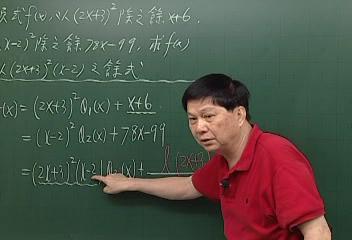 式f(x),以(2x+3)²除之餘x+6,
x-2)²除之餘78x-99,求f(x)
以(2x+3)²(x-2)之餘式
(x)=(2x+3)²Q₁(x)+x+6
=(x-2)²Q₂(x)+78x-99
=(2x+3)²(x-2)(x)+